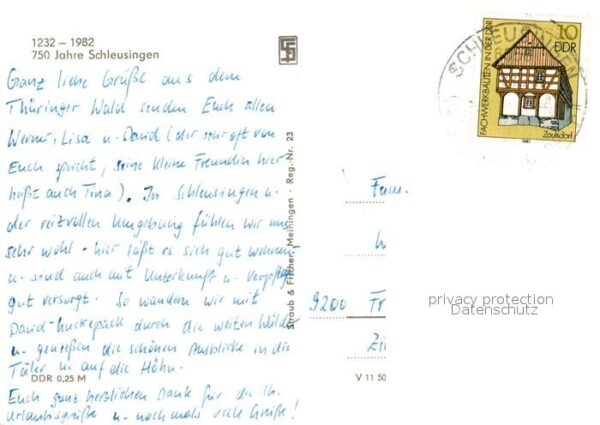 1232 – 1982
750 Jahre Schleusingen
Ganz liebe Grüße aus dem
Thüringer Wald senden Euch allen
Werner, Lisa u. David (der sehr oft von
Euch spricht, seine kleine Freundin hier
heißt auch Tina). In Schleusingen u.
der reizvollen Umgebung fühlen wir uns
sehr wohl - hier läßt es sich gut wohnen
u. sind auch mit Unterkunft u. Verpfleg
gut versorgt. So wandern wir mit
David-huckepack durch die weiten Wälder
u. genießen die schönen Ausblicke in die
Täler u. auf die Höhn.
DDR 0,25 M
Euch ganz herzlichen Dank für die lb.
Urlaubsgrüße u. nochmals viele Grüße!
Straub & Fischer, Meiningen · Reg.-Nr. 23
V 11 50
Fam.
9200 Fr
10
DDR
FACHWERKBAUTEN IN DER DDR
Zaulsdorf
1981
privacy protection
Datenschutz